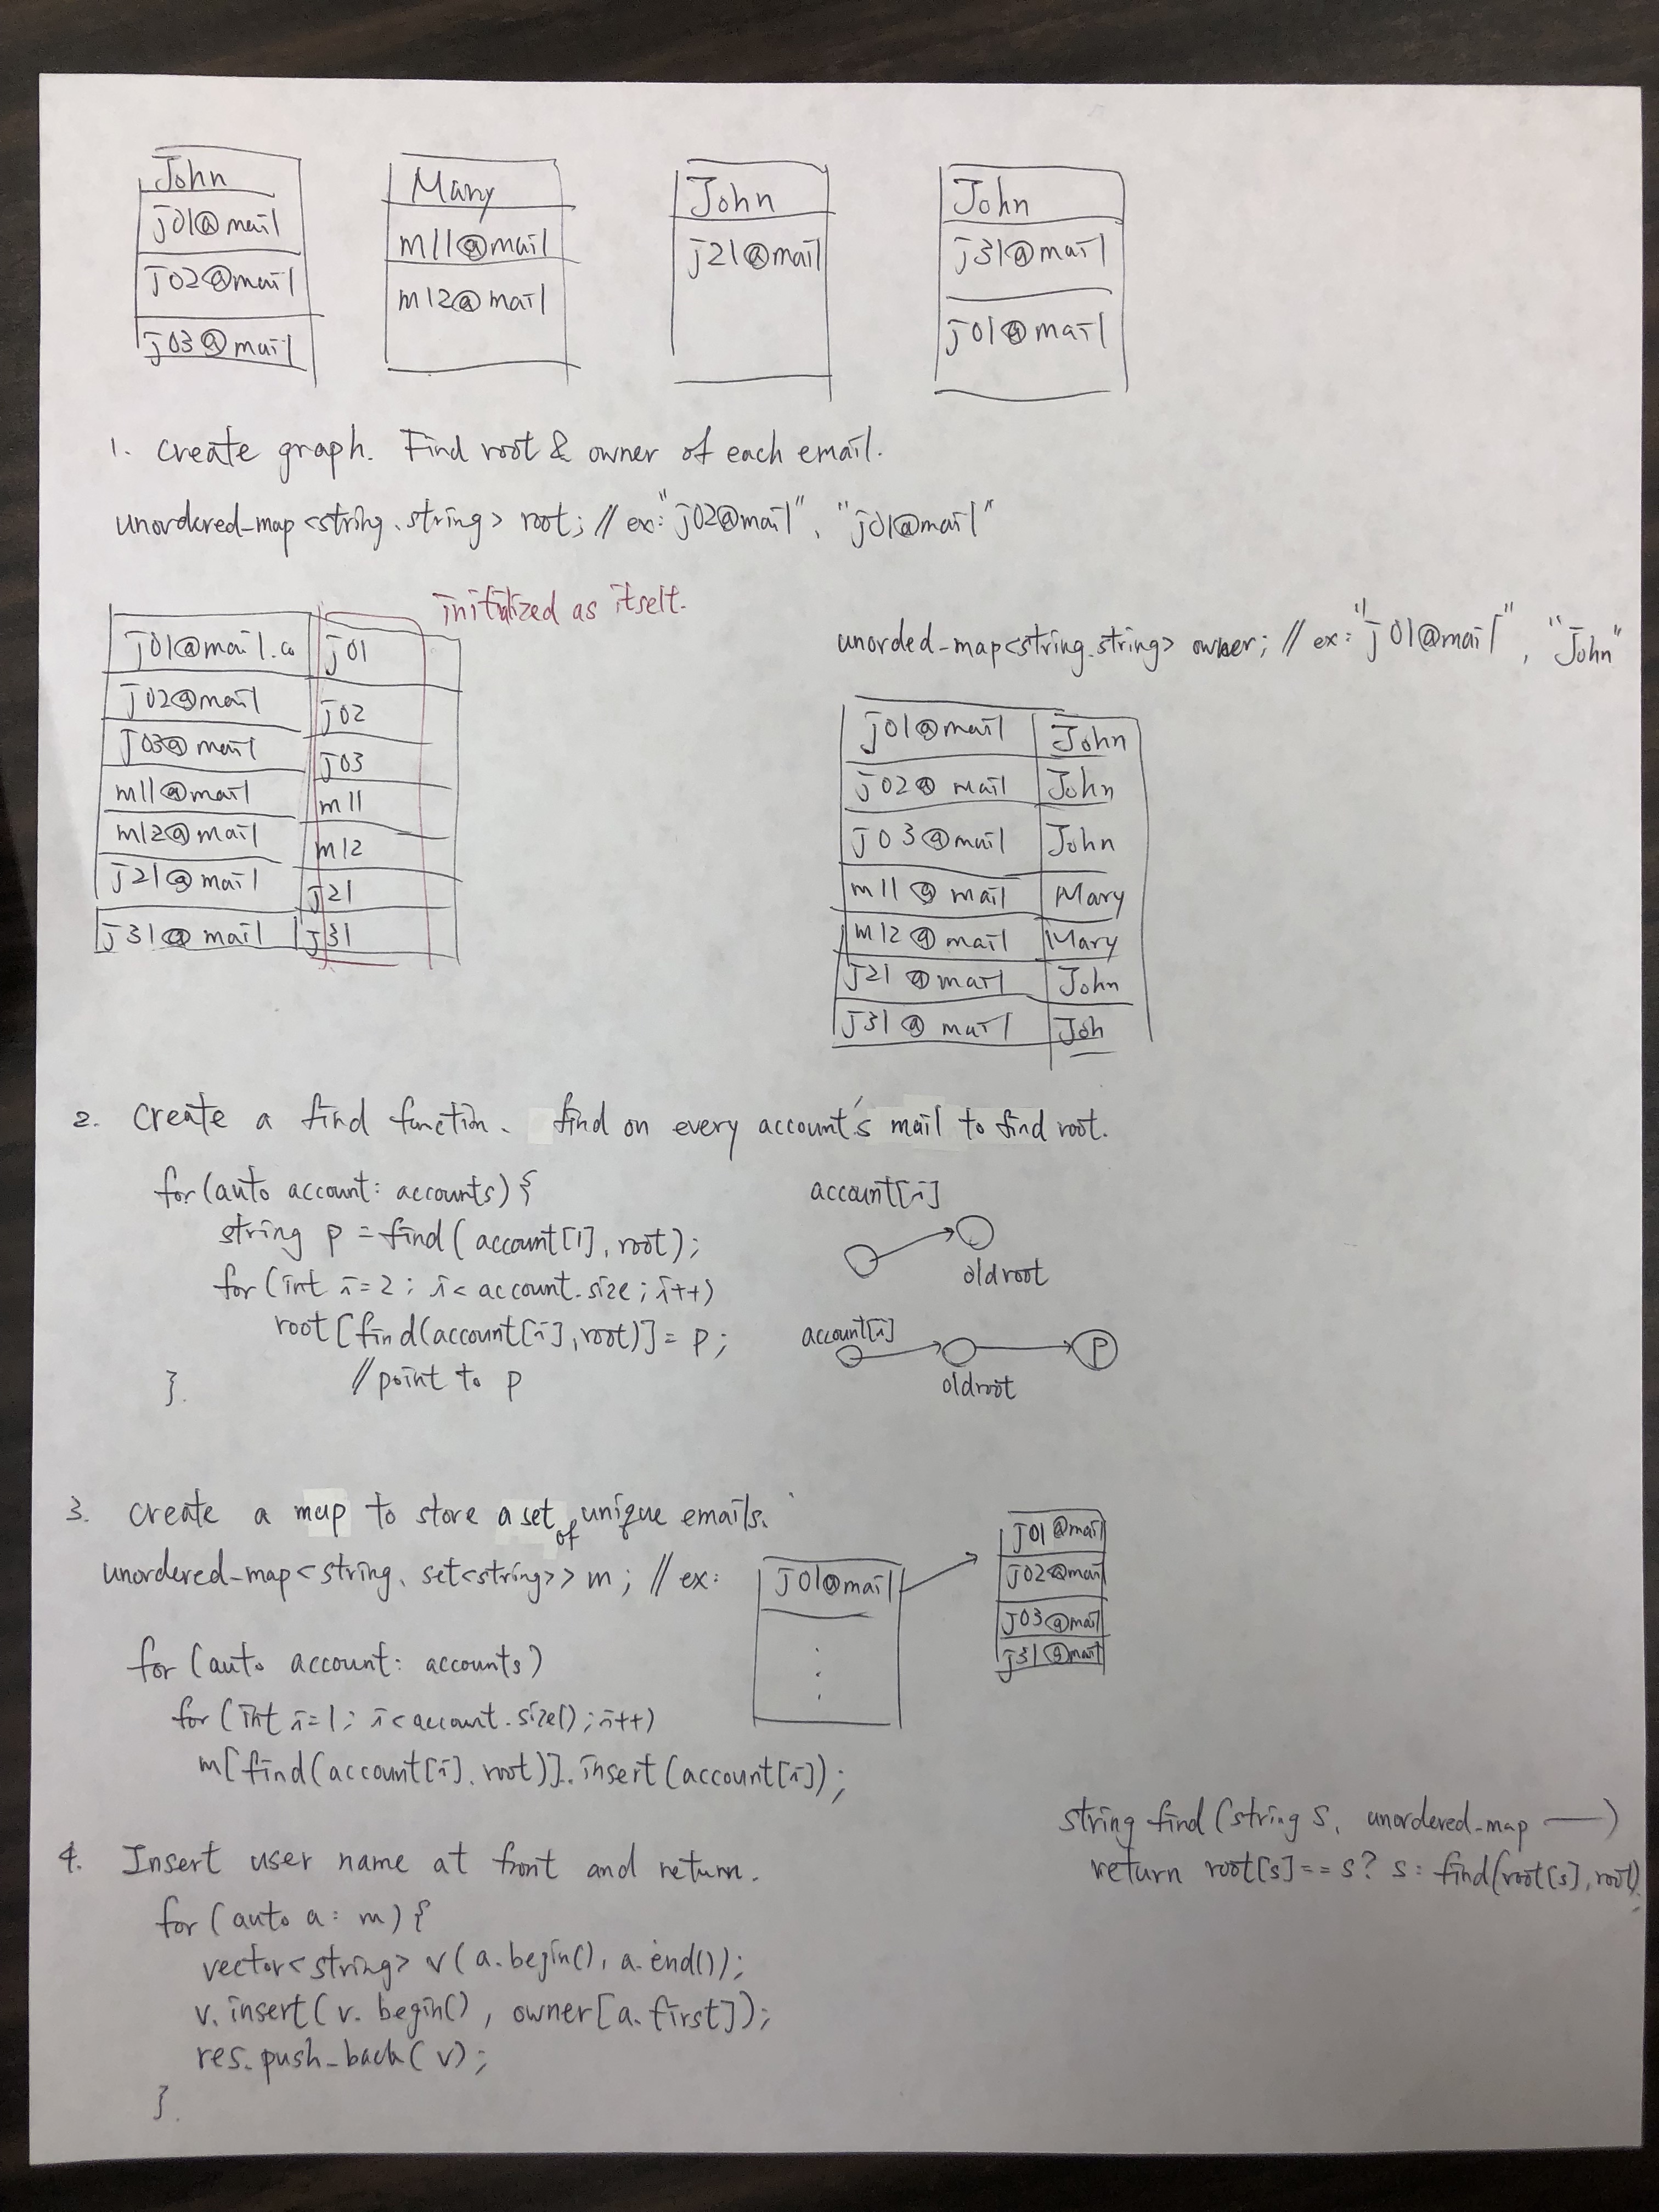 John
j01@mail
j02@mail
j03@mail
Mary
m11@mail
m12@mail
John
j21@mail
John
j31@mail
j01@mail
1. Create graph. Find root & owner of each email.
unordered_map<string, string> root; // ex: "j02@mail", "j01@mail"
initialized as itself.
j01@mail.co j01
j02@mail j02
j03@mail j03
m11@mail m11
m12@mail m12
j21@mail j21
j31@mail j31
unorded_map<string, string> owner; // ex: "j01@mail", "John"
j01@mail John
j02@mail John
j03@mail John
m11@mail Mary
m12@mail Mary
j21@mail John
j31@mail Joh
2. Create a find function. find on every account's mail to find root.
for (auto account: accounts) {
string p = find( account[1], root);
for (int i=2; i< account.size; i++)
root[find(account[i], root)] = p;
// point to p
}.
account[i]
oldroot
account[i]
oldroot
P
3. Create a map to store a set of unique emails.
unordered_map<string, set<string>> m; // ex:
j01@mail
j01@mail
j02@mail
j03@mail
j31@mail
for (auto account: accounts)
for (int i=1; i<account.size(); i++)
m[find(account[i], root)].insert(account[i]);
string find (string s, unordered_map —)
return root[s]==s? s: find(root[s], root)
4. Insert user name at front and return.
for (auto a: m) {
vector<string> v(a.begin(), a.end());
v.insert(v.begin(), owner[a.first]);
res.push_back(v);
}.